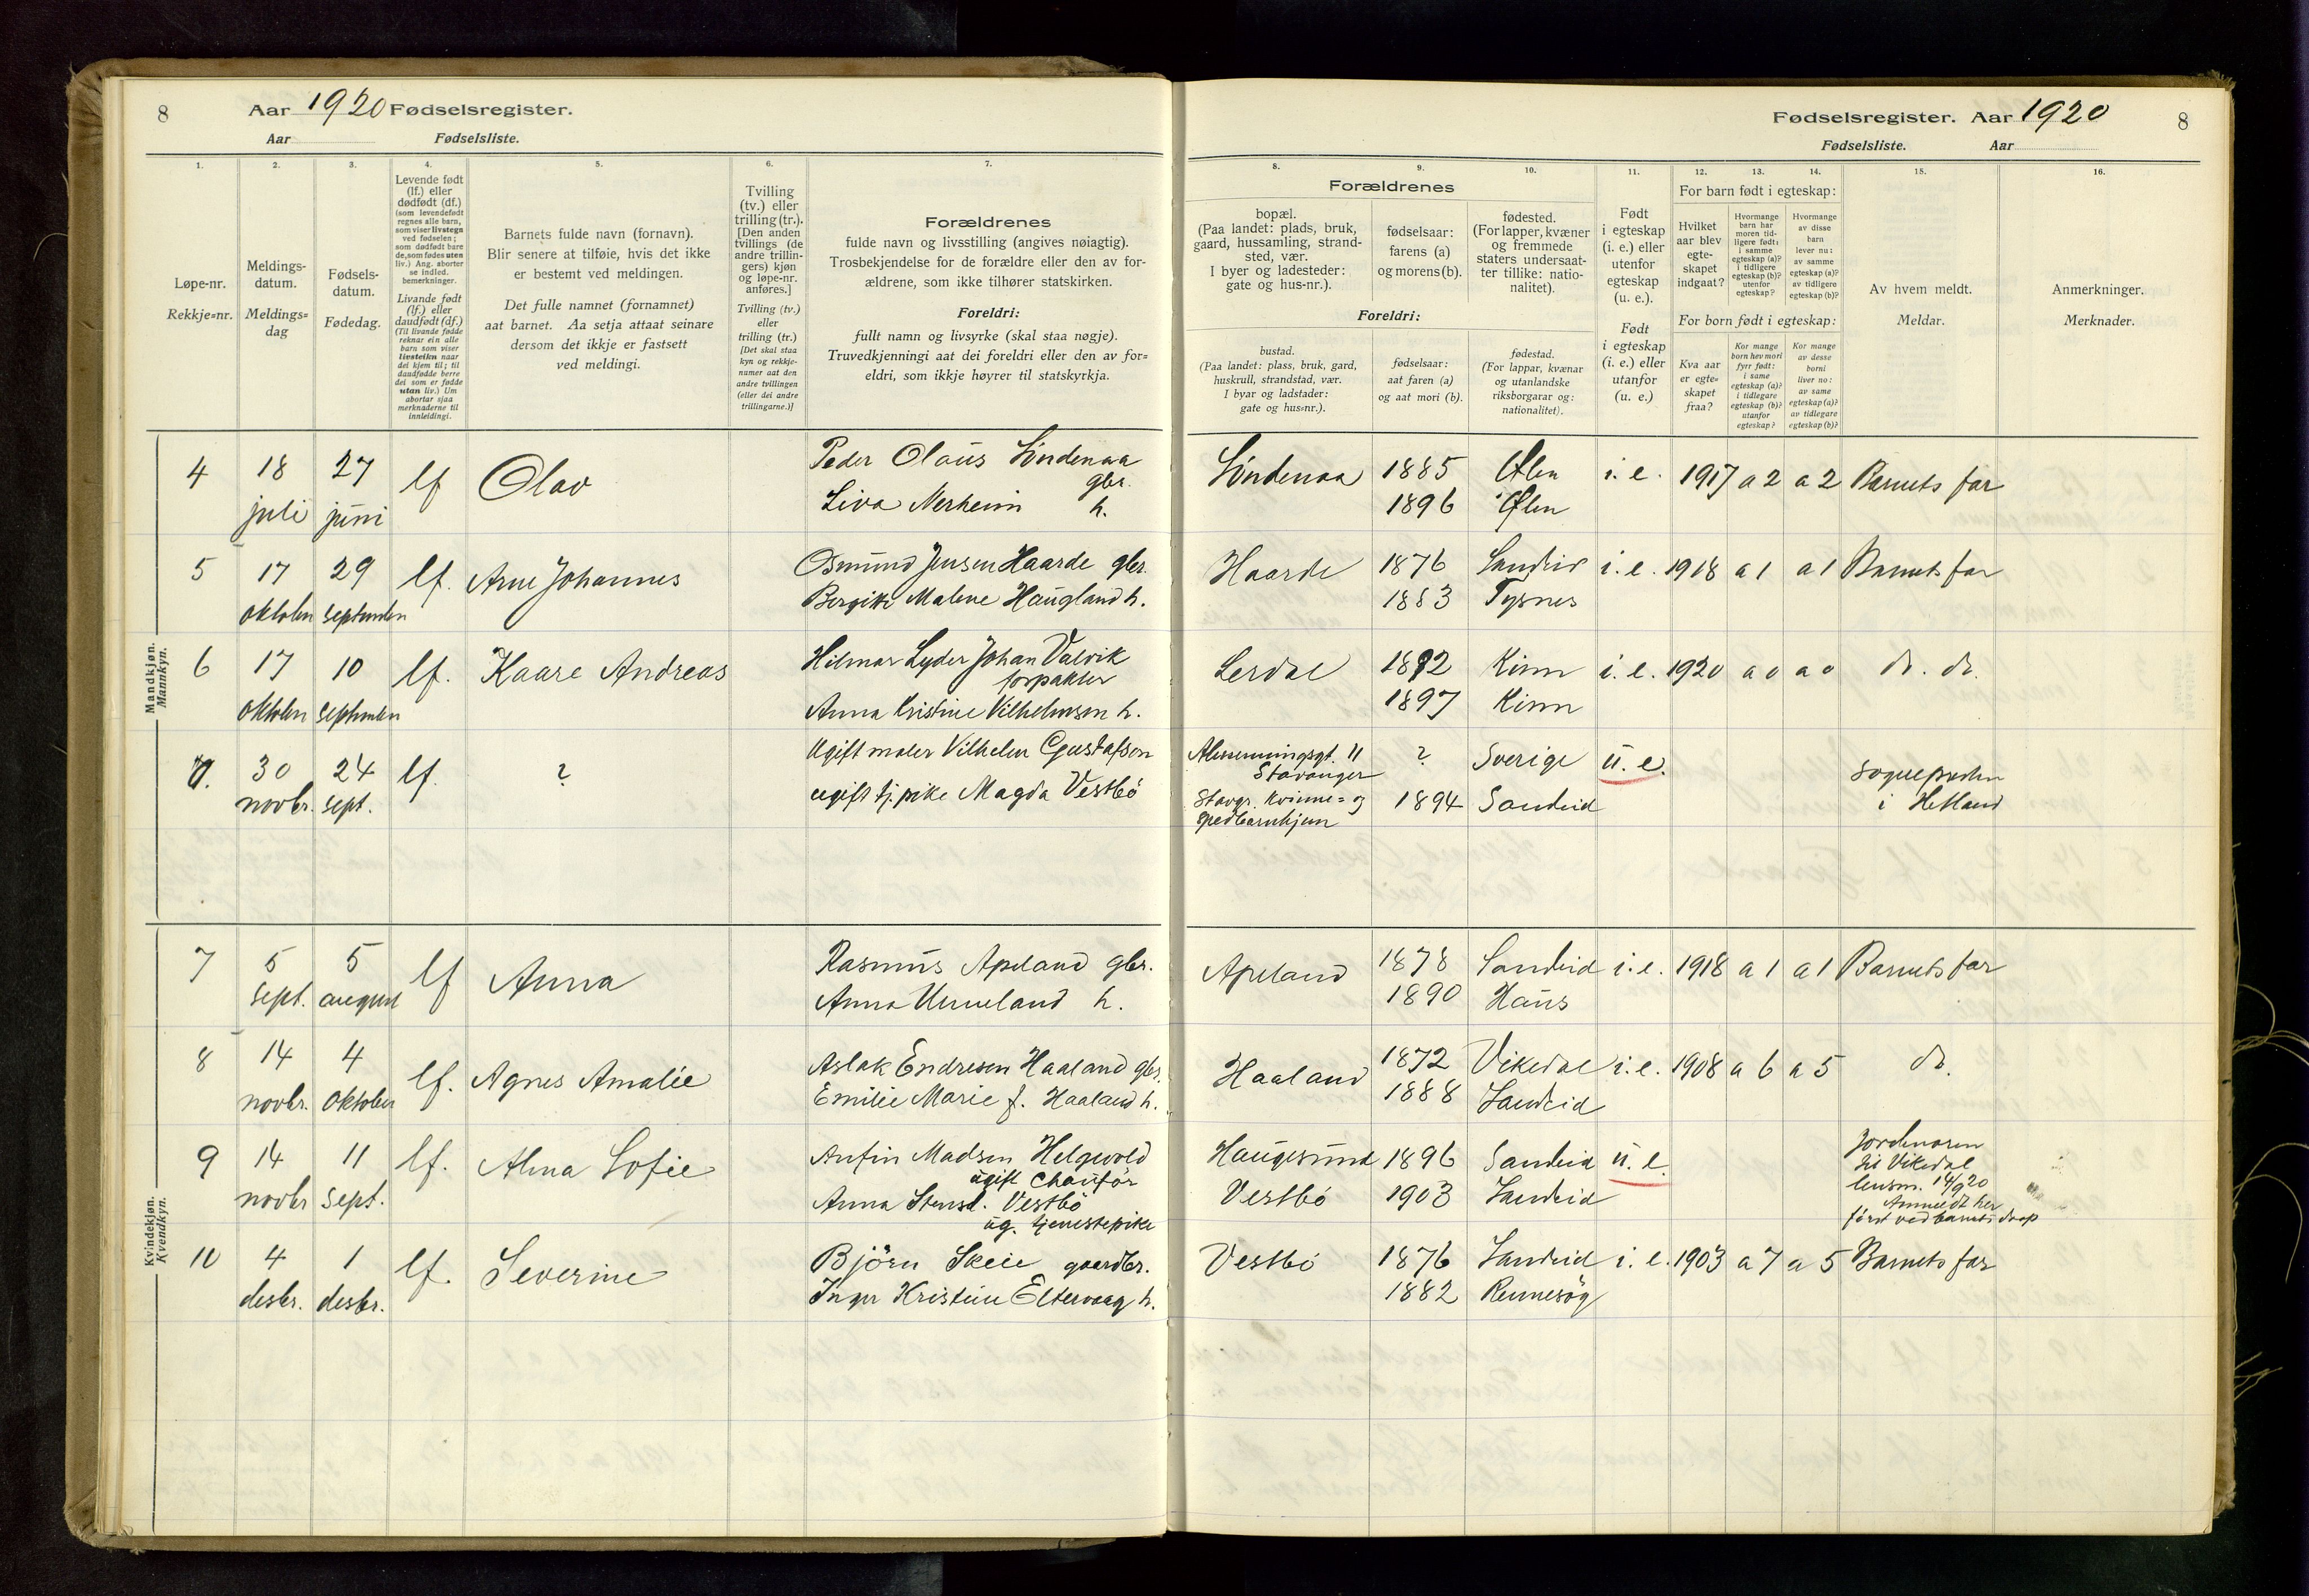 8
Aar 1920 Fødselsregister.
Aar Fødselsliste.
1.
Løpe-nr.
Rekkje=nr.
2.
Meldings-
datum.
Meldings=
dag
3.
Fødsels-
datum.
Fødedag.
4.
Levende født
(lf.) eller
dødfødt (df.)
(som levendefødt
regnes alle barn,
som viser livstegn
ved fødselen;
som dødfødt bare
de, som fødes uten
liv.) Ang. aborter
se indled.
bemerkninger.
Livande født
(lf.) eller
daudfødt (df.)
(Til livande fødde
reknar ein alle
barn som viser
livsteikn naar
dei kjem til; til
daudfødde berre
dei som er fødde
utan liv.) Um
abortar sjaa
merknaderne til
innleidingi.
5.
Barnets fulde navn (fornavn).
Blir senere at tilføie, hvis det ikke
er bestemt ved meldingen.
Det fulle namnet (fornamnet)
aat barnet. Aa setja attaat seinare
dersom det ikkje er fastsett
ved meldingi.
6.
Tvilling
(tv.) eller
trilling (tr.).
[Den anden
tvillings (de
andre trillin-
gers) kjøn
og løpe-nr.
anføres.]
Tvilling (tv.)
eller
trilling (tr.)
[Det skal staa
kyn og rekkje-
numer aat den
andre tvillingen
(eller dei andre
trillingarne.)]
7.
Forældrenes
fulde navn og livsstilling (angives nøiagtig).
Trosbekjendelse for de forældre eller den av for-
ældrene, som ikke tilhører statskirken.
Foreldri:
fullt namn og livsyrke (skal staa nøgje).
Truvedkjenningi aat dei foreldri eller den av for=
eldri, som ikkje høyrer til statskyrkja.
Mandkjøn.
Mannkyn.
4 18 juli 27 juni lf Olav
Peder Olaus Søndenaa
gbr.
Liva Nerheim h.
5 17 oktober 29 september lf. Arne Johannes
Osmund Jensen Haarde gbr.
Bergite Malene Haugland h.
6 17 oktober 10 september lf. Kaare Andreas
Hilmar Lyder Johan Valvik
forpakter
Anna Kristine Vilhelmsen h.
7. 30 novbr. 24 sept. lf. ?
Ugift maler Vilhelm Gustafson
ugift tj. pike Magda Vestbö
Kvindekjøn.
Kvendkyn.
7 5 sept. 5 august lf Anna
Rasmus Apeland gbr.
Anna Unneland h.
8 14 novbr. 4 oktober lf. Agnes Amalie
Aslak Endresen Haaland gbr.
Emilie Marie f. Haaland h.
9 14 novbr 11 sept. lf. Alma Sofie
Anfin Madsen Helgevold
ugift chauför
Anna Stensd. Vestbö
ug. tjenestepike
10 4 desbr. 1 desbr. lf. Severine
Björn Skeie gaardbr.
Inger Kristine Eltervaag h.
Fødselsregister. Aar 1920
8
Fødselsliste. Aar
8.
Forældrenes
bopæl.
(Paa landet: plads, bruk,
gaard, hussamling, strand-
sted, vær.
I byer og ladesteder:
gate og hus-nr.).
9.
fødselsaar:
farens (a)
og morens (b).
10.
fødested.
(For lapper, kvæner
og fremmede
staters undersaat-
ter tillike: natio-
nalitet).
Foreldri:
bustad.
(Paa landet: plass, bruk, gard,
huskrull, strandstad, vær.
I byar og ladstader:
gate og hus=nr.).
fødselsaar:
aat faren (a)
og aat mori (b).
fødestad.
(For lappar, kvænar
og utanlandske
riksborgarar og:
nationalitet).
11.
Født
i egteskap
(i. e.) eller
utenfor
egteskap
(u. e.).
Født
i egteskap
(i. e.) eller
utanfor
(u. e.)
12. 13. 14.
For barn født i egteskap:
Hvilket
aar blev
egte-
skapet
indgaat?
Hvormange
barn har
moren tid-
ligere født:
i samme
egteskap (a)?
i tidligere
egteskap (b)?
utenfor
egteskap?
Hvormange
av disse
barn
lever nu:
av samme
egteskap (a)?
av tidligere
egteskap (b)?
For born født i egteskap:
Kva aar
er egte=
skapet
fraa?
Kor mange
born hev mori
fyrr født:
i same
egteskap (a)?
i tidlegare
egteskap (b)?
utanfor
egteskap?
Kor mange
av desse
borni
liver no:
av same
egteskap (a)?
av tidlegare
egteskap (b)?
15.
Av hvem meldt.
Meldar.
16.
Anmerkninger.
Merknader.
Søndenaa 1885 Ølen i. e. 1917 a 2 a 2 Barnets far
1896 Ølen
Haarde 1876 Sandeid i. e. 1918 a 1 a 1 Barnets far
1883 Tysnes
Lerdal 1892 Kinn i. e. 1920 a 0 a 0 do. do.
1897 Kinn
11 Stavanger ? Sverige u. e. Sognepresten
Stavgr. Kvinne= og 1894 Sandeid i Hetland
spedbarnhjem
Apeland 1878 Sandeid i. e. 1918 a 1 a 1 Barnets far
1890 Haus
Haaland 1872 Vikedal i. e. 1908 a 6 a 5 do.
1888 Sandeid
Haugesund 1896 Sandeid u. e.
Vestbö 1903 Sandeid
Jordmoren
til Vikedal
lensm. 14/9 20
Anmeldt her
först ved barnets daap
Vestbö 1876 Sandeid i. e. 1903 a 7 a 5 Barnets far
1882 Rennesöy